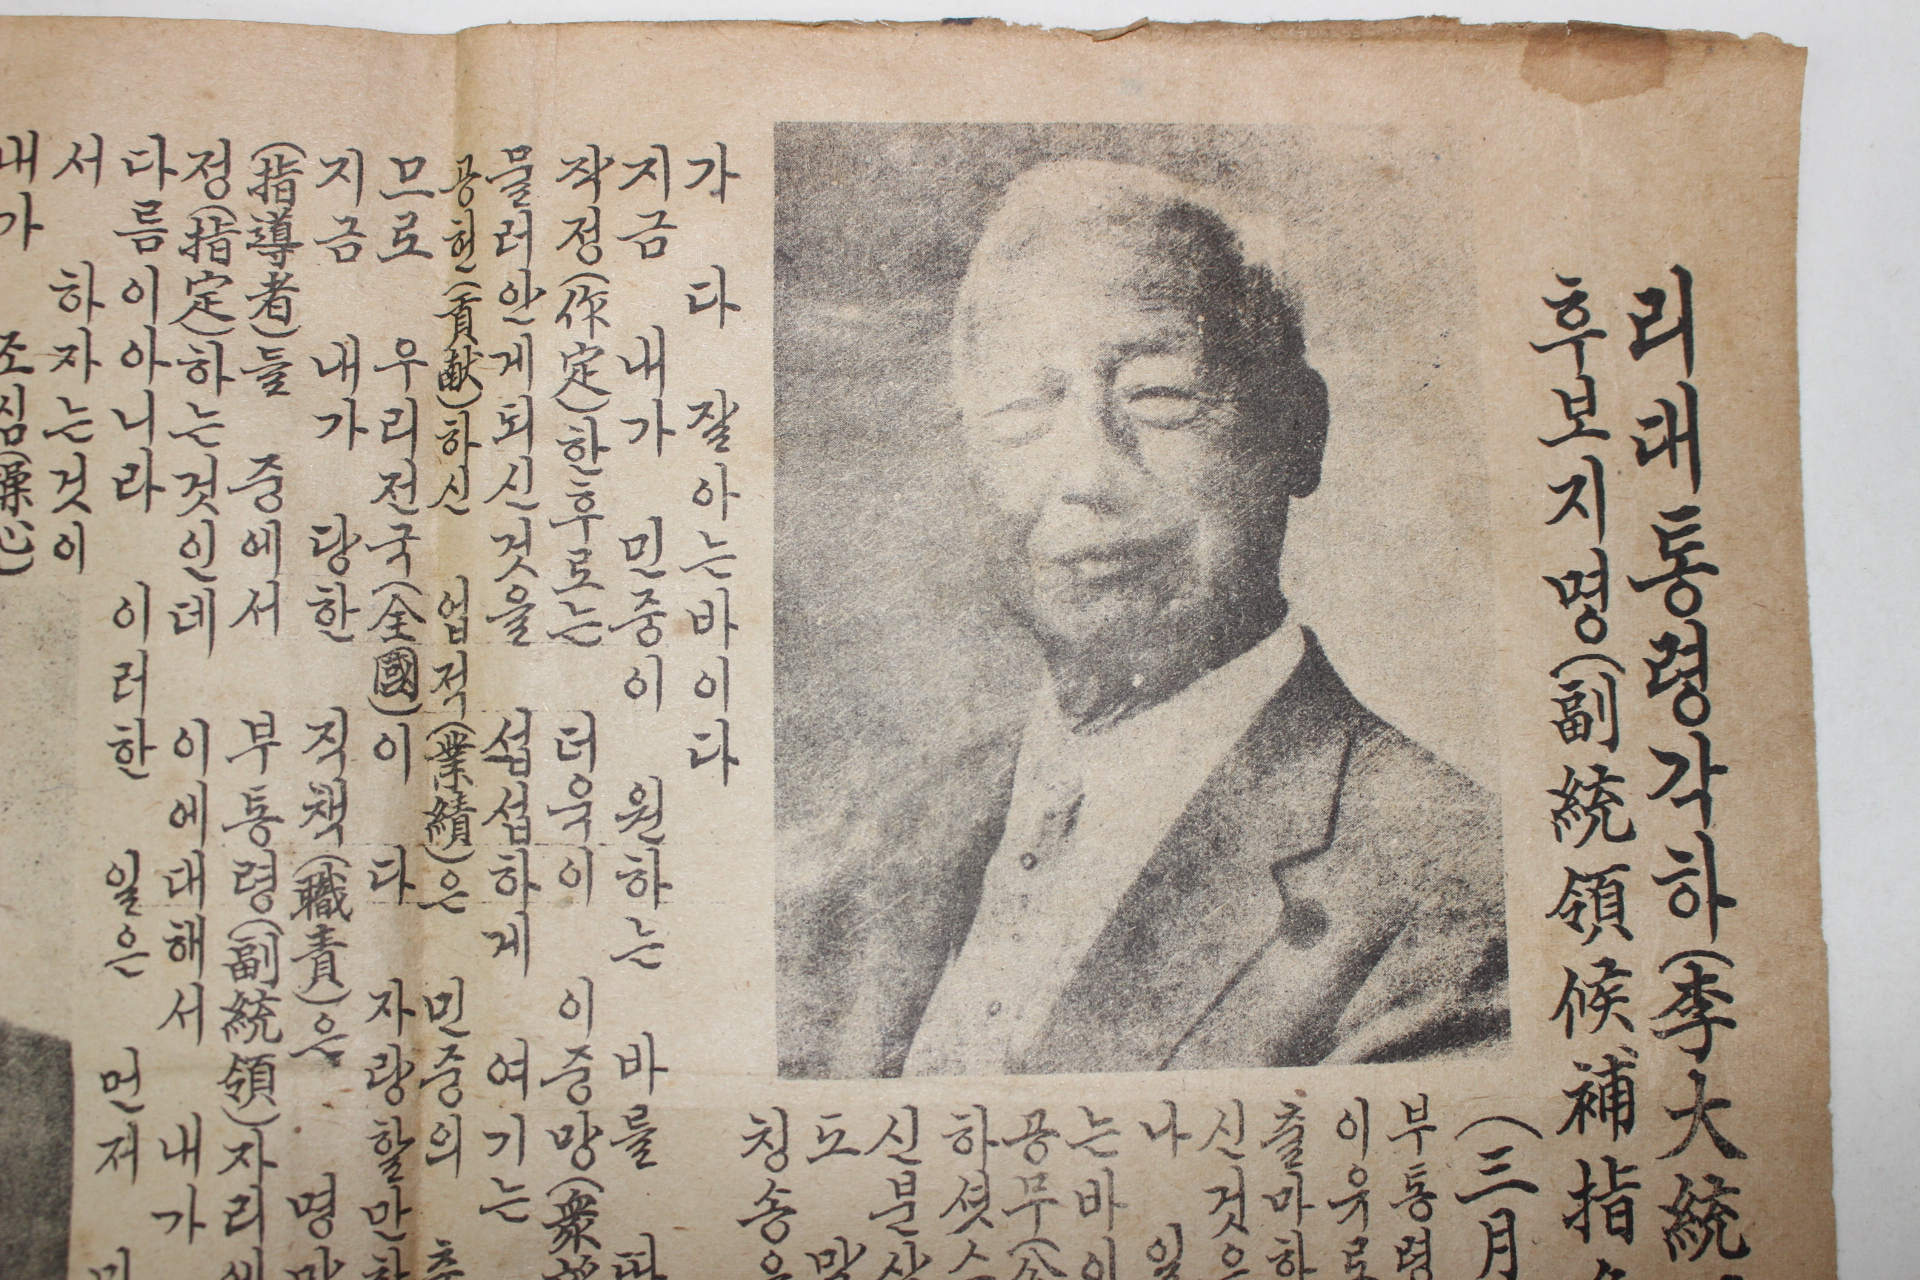 리대통령각하(李大統
후보지명(副統領候補指
(三月
부통령
이유로
출마하
신것은
나 일
는바이
공무(公
하셧스
신분상
도 말
칭송을
가 다 잘아는바이다
지금 내가 민중이 원하는 바를
작정(作定)한후로는 더욱이 이중망(衆
물러안게되신것을 섭섭하게 여기는
공헌(貢献)하신 업적(業績)은 민중의
므로 우리전국(全國)이 다 자랑할만한
지금 내가 당한 직책(職責)은 명
(指導者)들 중에서 부통령(副統領)자리에
정(指定)하는것인데 이에대해서 내가
다름이아니라 이러한 일은 먼저
서 하자는것이
내가 조심(操心)